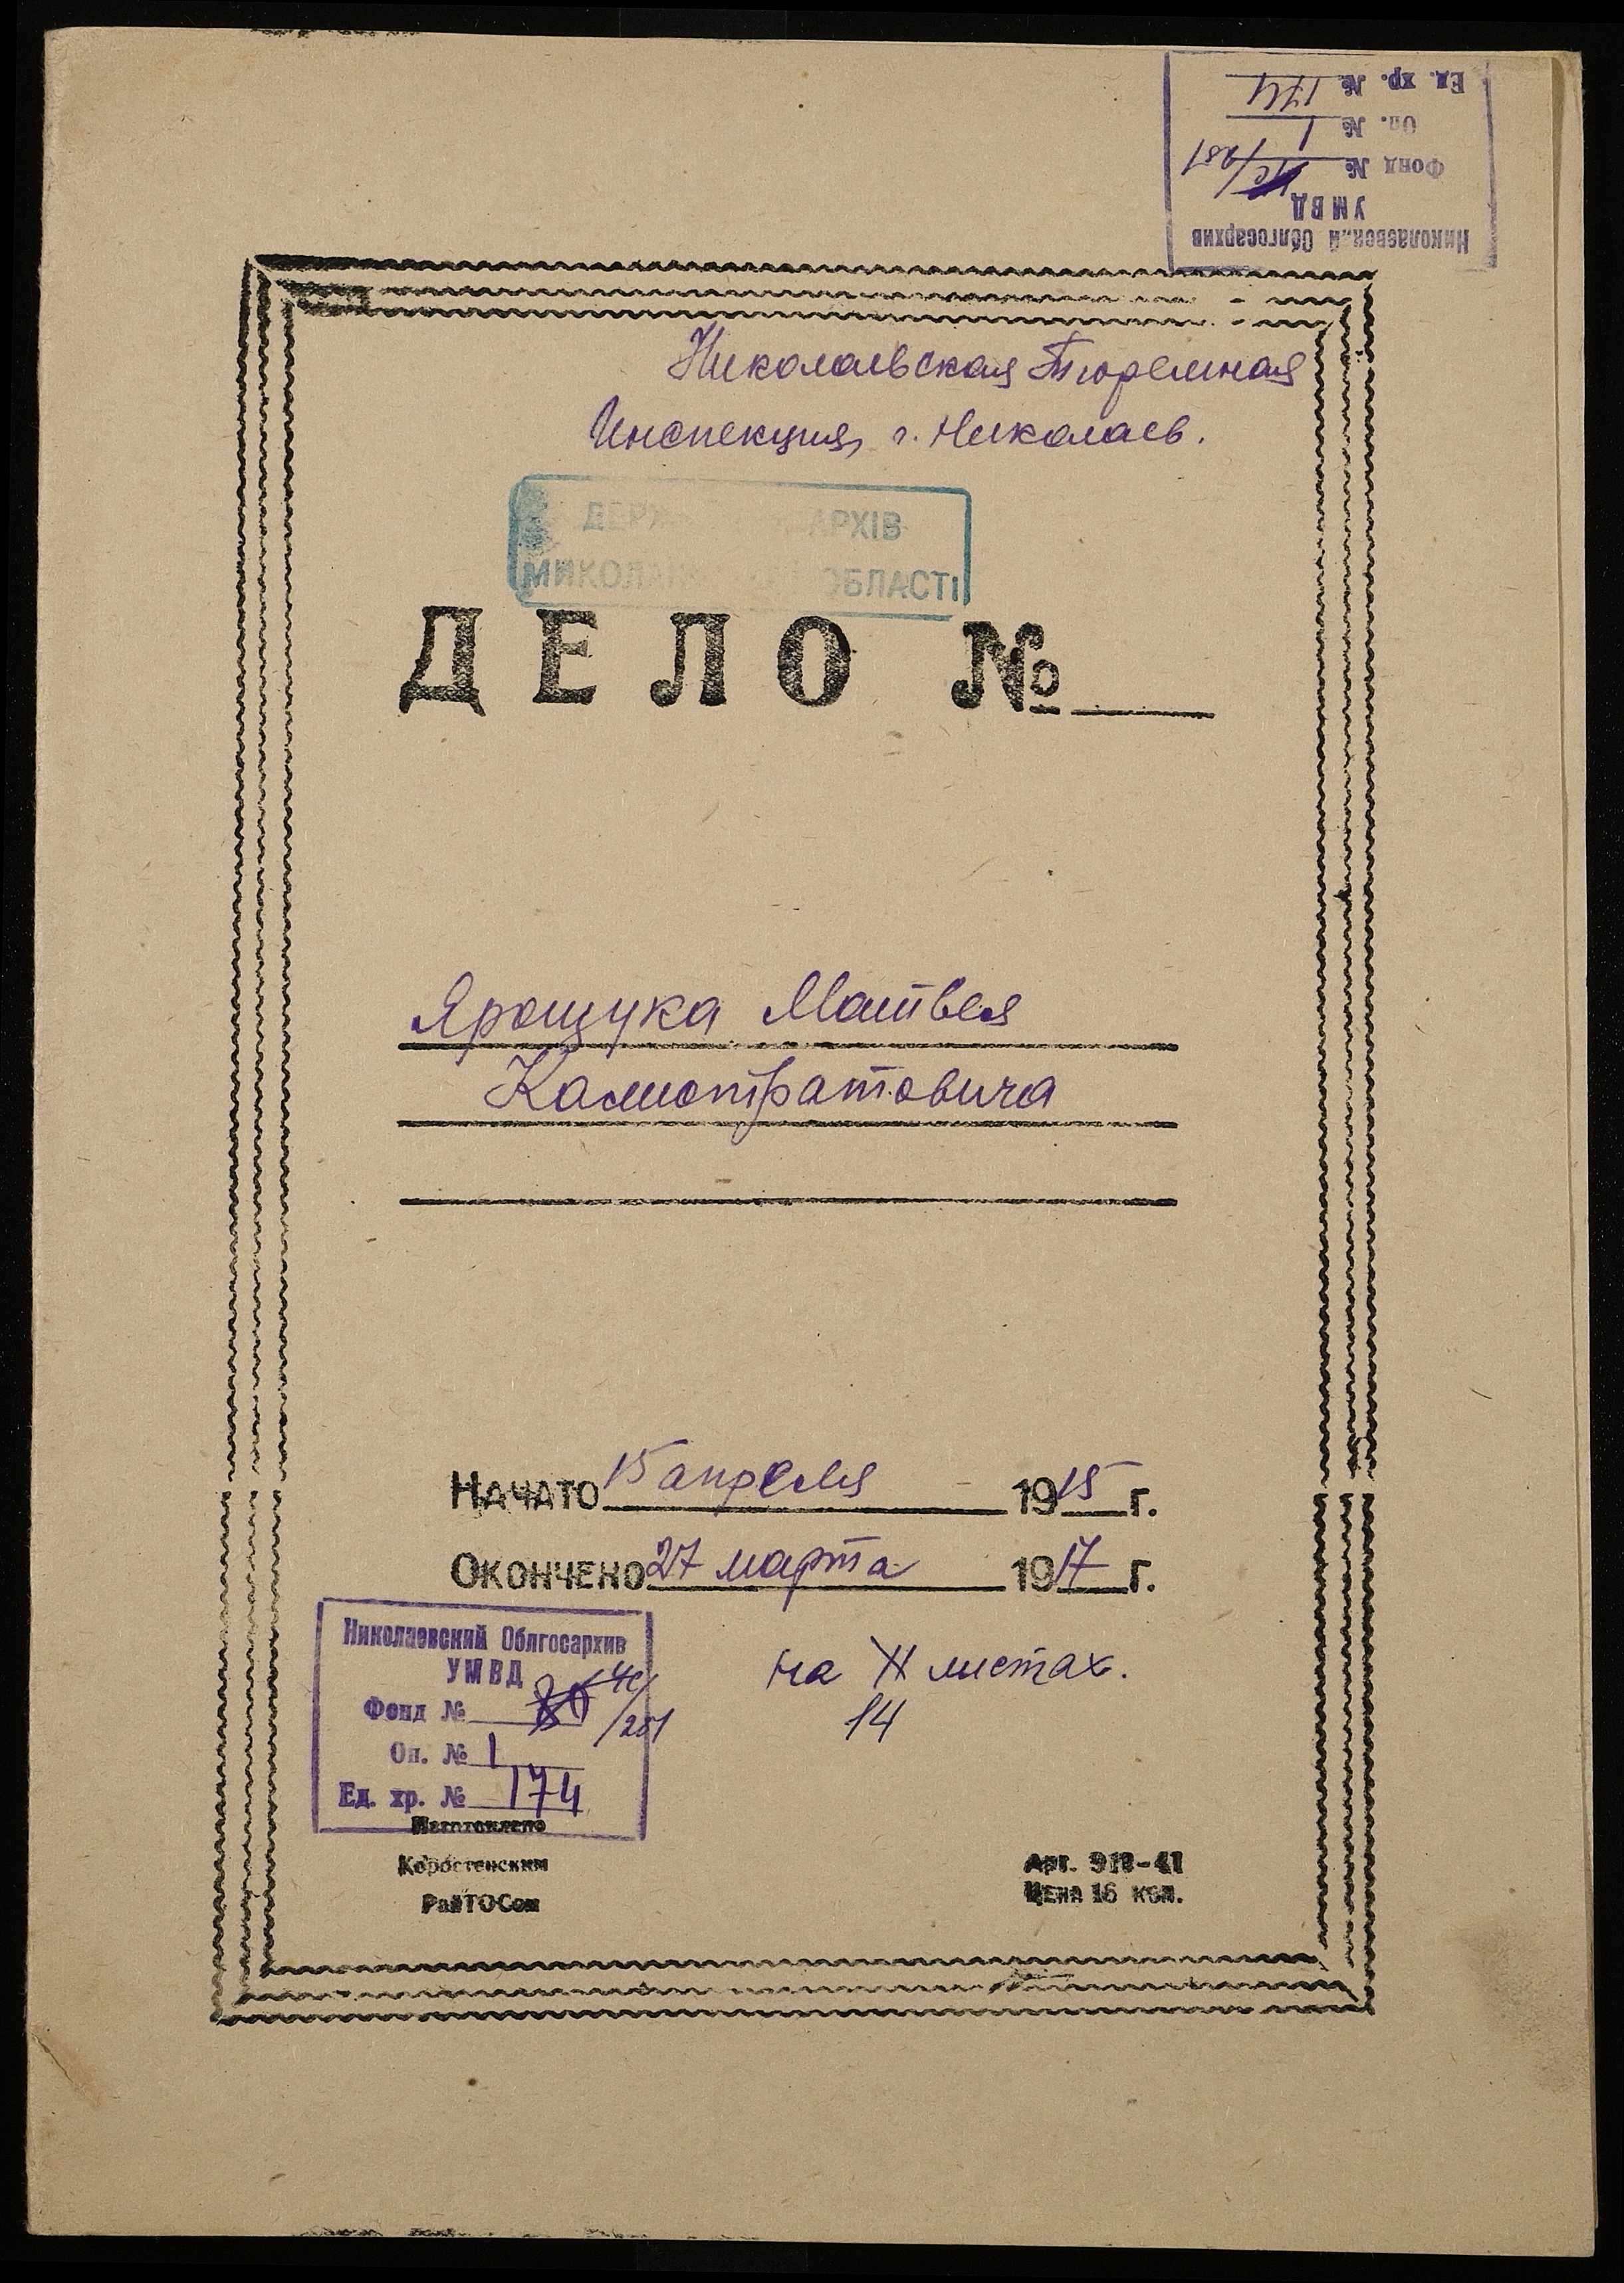 Николаевский Облгосархив
УМВД
Фонд № /251
Оп. № 1
Ед. хр. № 174
Николаевская Тюремная
Инспекция, г. Николаев.
АРХІВ
ОБЛАСТІ
ДЕЛО №
Ярощука Матвея
Калистратовича
НАЧАТО 15 апреля 1915 г.
ОКОНЧЕНО 27 марта 1917 г.
на листах.
14
Николаевский Облгосархив
УМВД
Фонд № /251
Оп. № 1
Ед. хр. № 174
Изготовлено
Коростенским
РайТОСом
Арт. 911-41
ЦЕНА 16 коп.